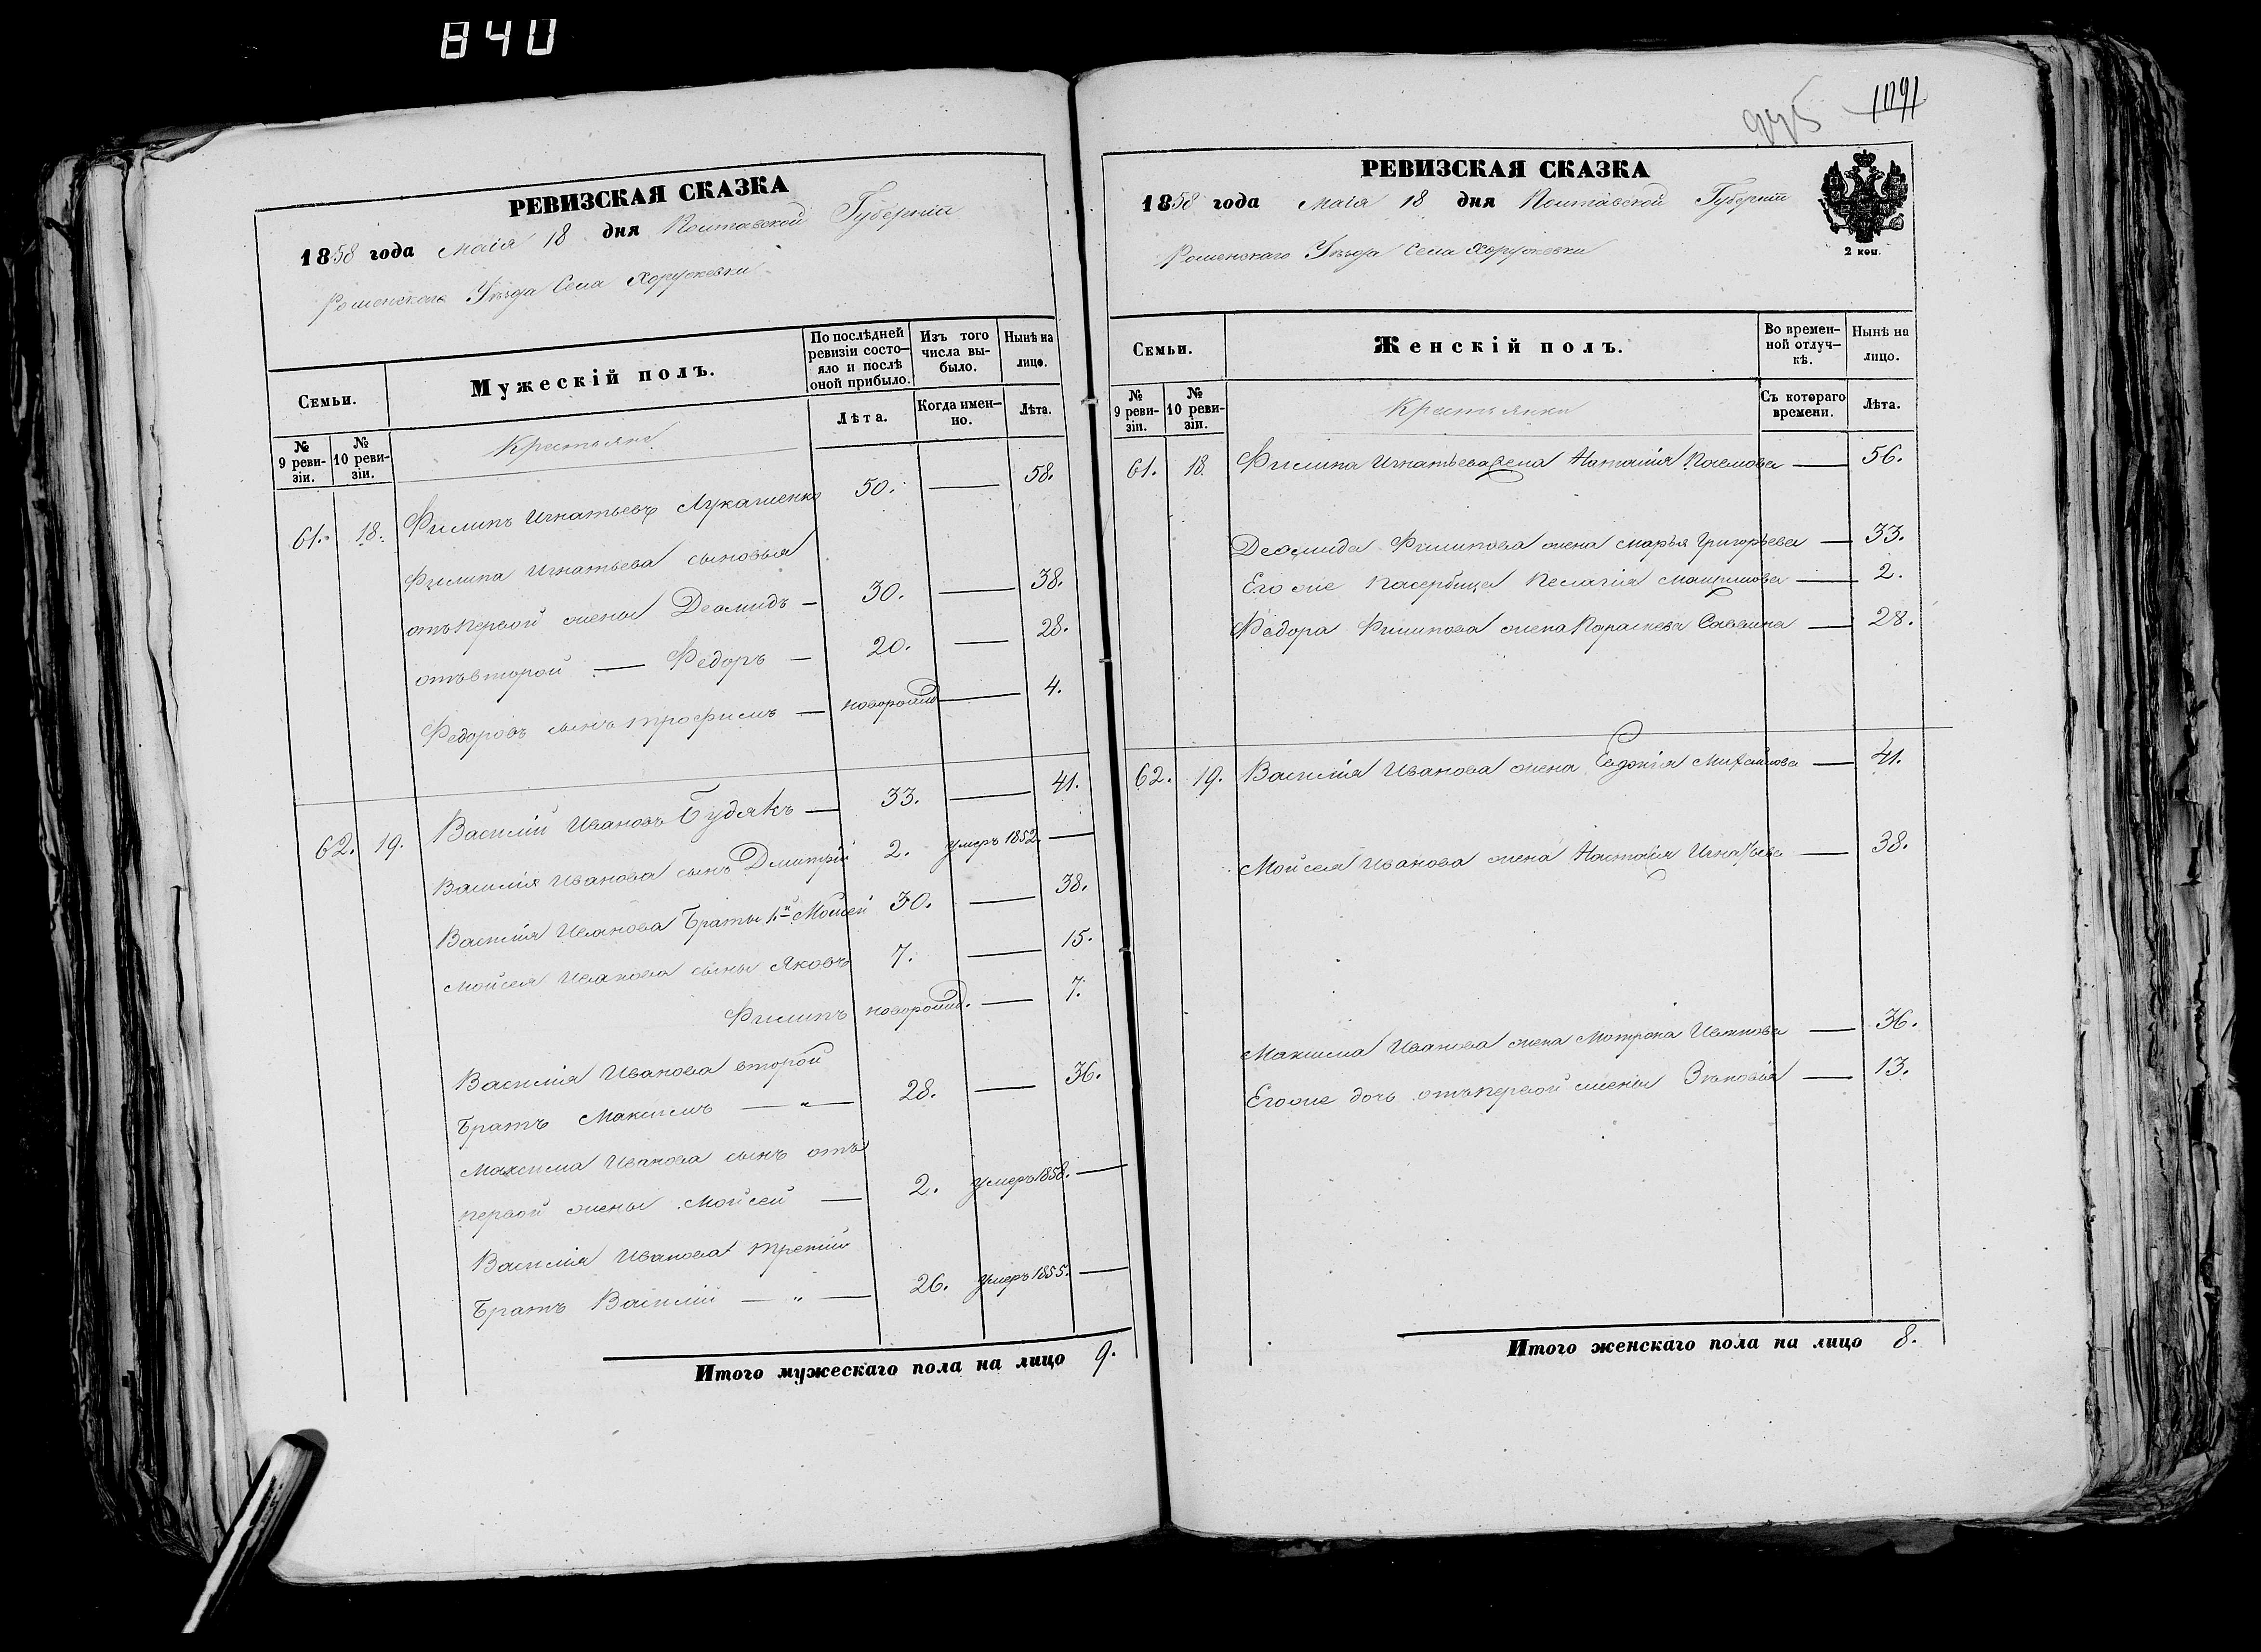 840
РЕВИЗСКАЯ СКАЗКА
1858 года Маія 18 дня Полтавской Губерніи
Роменскаго Уѣзда Села Хоружевки
Семьи.
Мужескій полъ.
По послѣдней ревизіи состо-яло и послѣ оной прибыло.
Изъ того числа вы-было.
Нынѣ на лицо.
№ 9 реви-зіи.
№ 10 реви-зіи.
Крестьяне
Лѣта.
Когда имен-но.
Лѣта.
61. 18. Филипъ Игнатьевъ Лукашенко 50. — 58.
Филипа Игнатьева сыновья
отъ первой жены Деомидъ — 30. — 38.
отъ второй — Федоръ — 20. — 28.
Федоровъ сынъ Трофимъ — новорожд — 4.
62. 19. Василій Ивановъ Будякъ — 33. — 41.
Василія Иванова сынъ Дмитрій 2. умеръ 1852. —
Василія Иванова Браты 1й Мойсей 30. — 38.
Мойсея Иванова сыны Яковъ 7. — 15.
Филипъ новорожд. — 7.
Василія Иванова второй
Братъ Максимъ — „ — 28. — 36.
Максима Иванова сынъ отъ
первой жены Мойсей — 2. умеръ 1858. —
Василія Иванова третій
Братъ Василій — „ — 26. умеръ 1855. —
Итого мужескаго пола на лицо 9.
975 1091
РЕВИЗСКАЯ СКАЗКА
1858 года Маія 18 дня Полтавской Губерніи
Роменскаго Уѣзда Села Хоружевки
2 коп.
Семьи.
Женскій полъ.
Во времен-ной отлуч-кѣ.
Нынѣ на лицо.
№ 9 реви-зіи.
№ 10 реви-зіи.
Крестьянки
Съ котораго времени.
Лѣта.
61. 18. Филипа Игнатьева жена Наталія — 56.
Деомида Филипова жена Марья Григорьева — 33.
Его же Пасербица Пелагія — 2.
Федора Филипова жена Параскева Саввина — 28.
62. 19. Василія Иванова жена Евдокія Михайлова — 41.
Мойсея Иванова жена Настасія Игнатьева — 38.
Максима Иванова жена Мотрона Иванова — 36.
Его же дочь отъ первой жены Зѣновія — 13.
Итого женскаго пола на лицо 8.